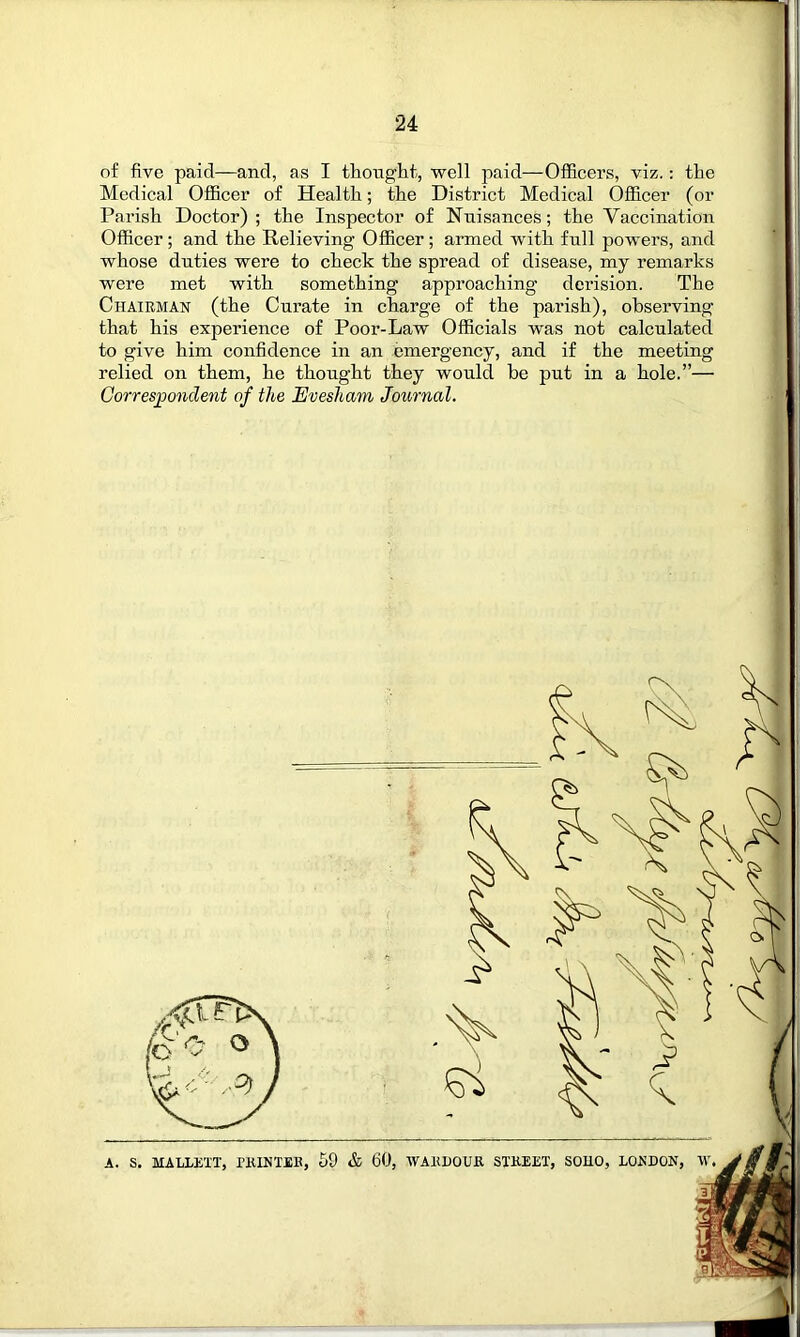 24
of five paid—and, as I thought, well paid—Officers, viz. : the
Medical Officer of Health; the District Medical Officer (or
Parish Doctor) ; the Inspector of Nuisances; the Vaccination
Officer; and the Relieving Officer; armed with full powers, and
whose duties were to check the spread of disease, my remarks
were met with something approaching derision. The
CHAIRMAN (the Curate in charge of the parish), observing
that his experience of Poor-Law Officials was not calculated
to give him confidence in an emergency, and if the meeting
relied on them, he thought they would be put in a hole.”—
Correspondent of the Evesham Journal.
Chatto
Librarian
College of Surgeons
Inn Fields
London W.C.
A. S. MALLETT, PRINTER, 59 & 60, WARDOUR STREET, SOHO, LONDON, W.